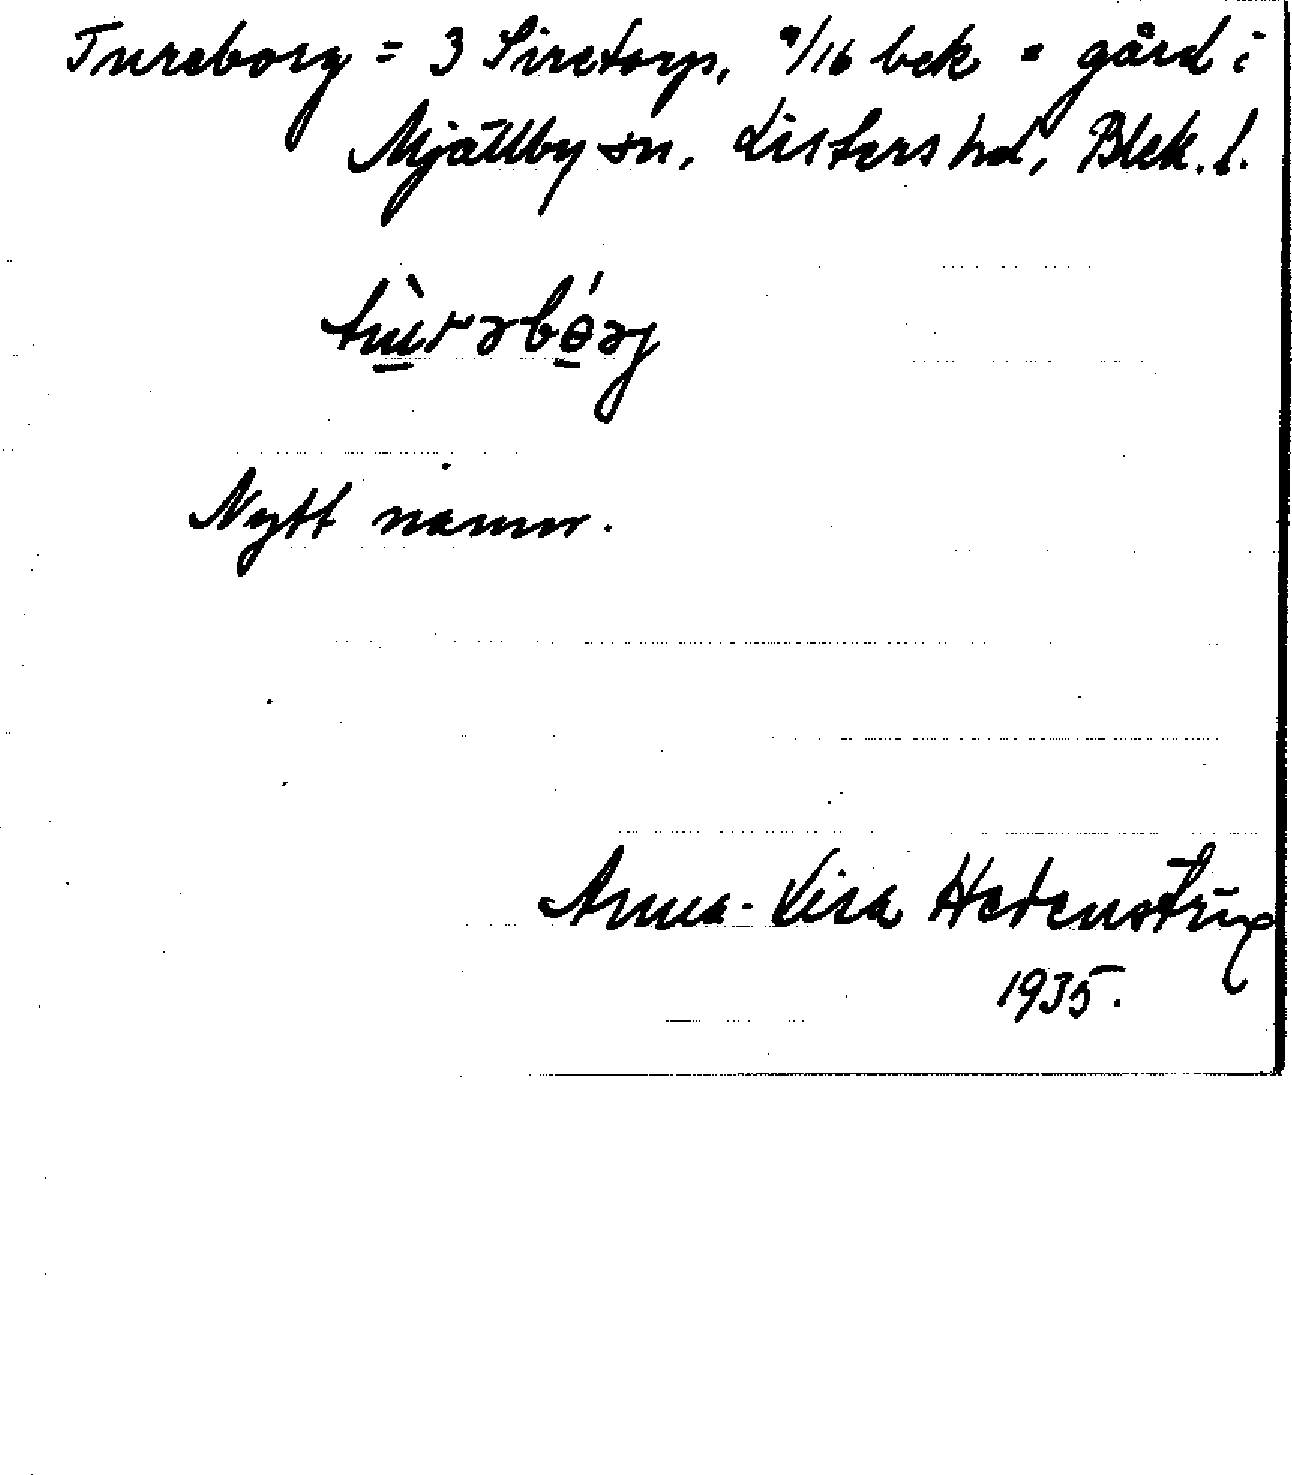 Tureborg = 3 Siretorp, 9/16 bek = gård i
Mjällby sn, Listers hd, Blek. l.
tùrəbórj
Nytt namn.
Anna-Lisa Hedenstrup
1935.